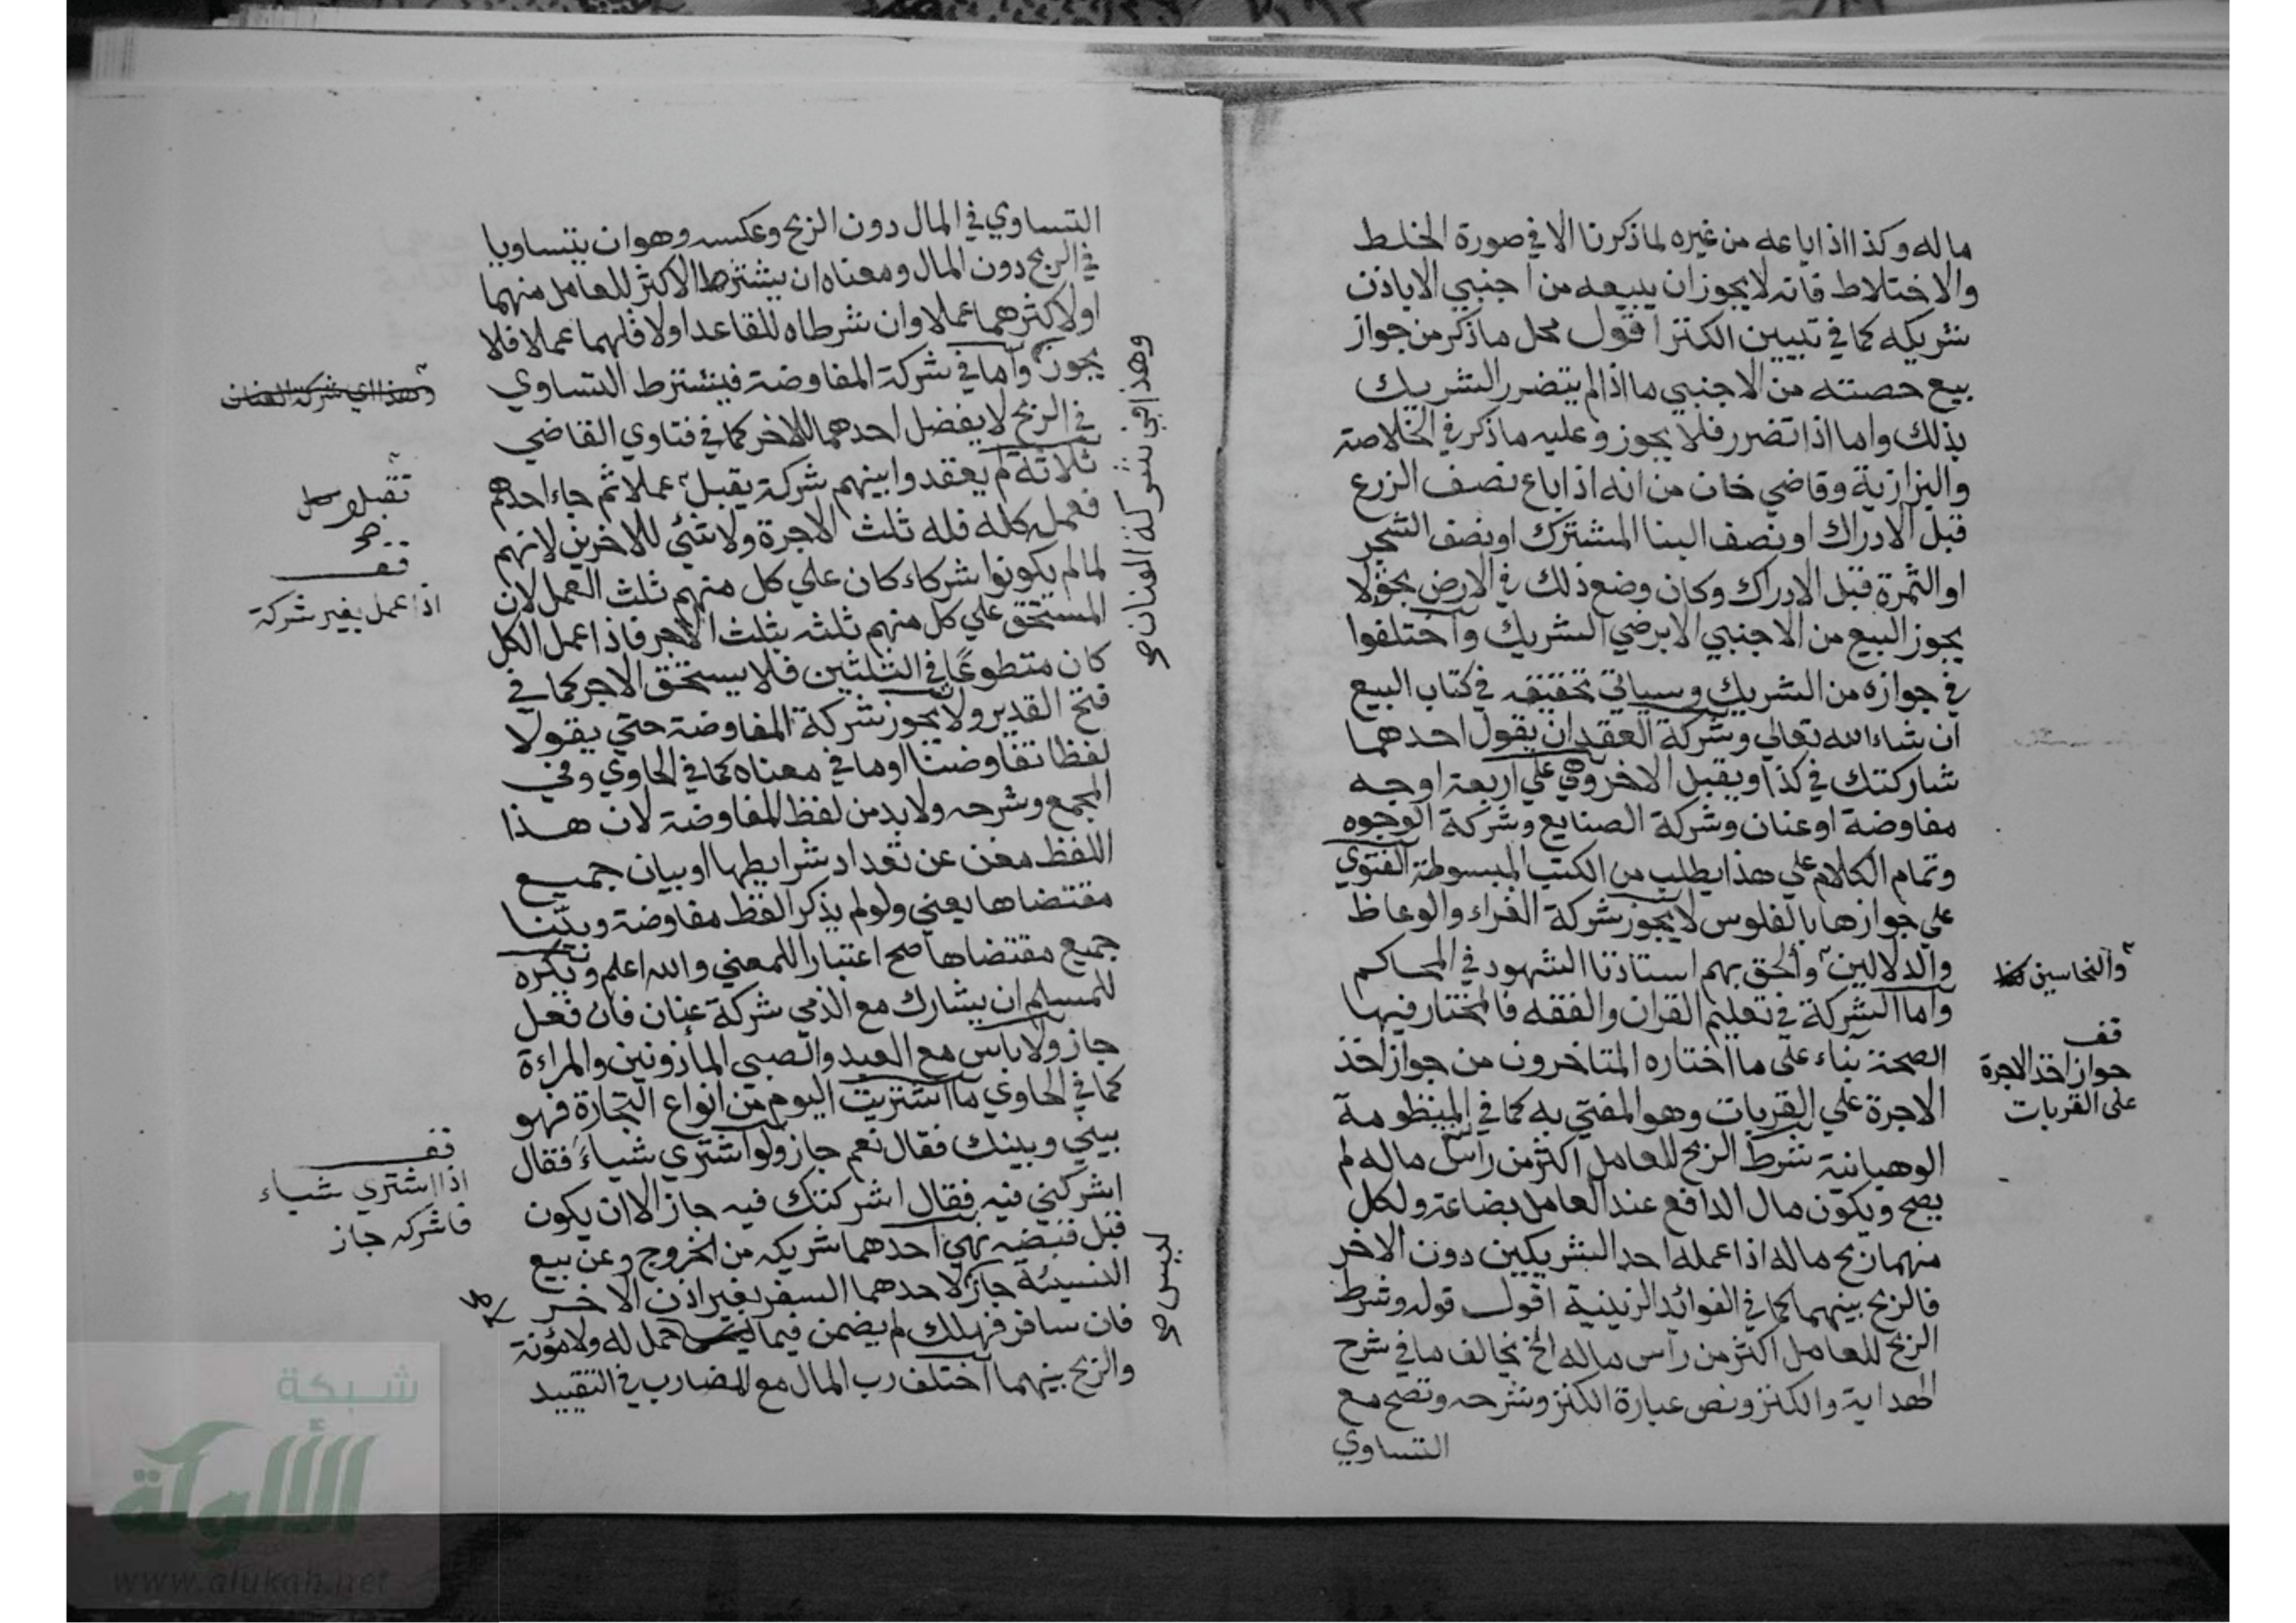 ماله وكذا اذا باعه من غيره لما ذكرنا الا في صورة الخلط
والاختلاط فانه لا يجوز ان يبيعه من اجنبي الا باذن
شريكه كما في تبيين الكنز اقول محل ما ذكر من جواز
بيع حصته من الاجنبي ما اذا لم يتضرر الشريك
بذلك واما اذا تضرر فلا يجوز وعليه ما ذكر في الخلاصة
والبزازية وقاضي خان من انه اذا باع نصف الزرع
قبل الادراك او نصف البنا المشترك او نصف الشجر
او الثمرة قبل الادراك وكان وضع ذلك في الارض بحق لا
يجوز البيع من الاجنبي الا برضي الشريك واختلفوا
في جوازه من الشريك وسياتي تحقيقه في كتاب البيع
ان شاء الله تعالي وشركة العقد ان يقول احدهما
شاركتك في كذا ويقبل الاخر وهي علي اربعة اوجه
مفاوضة او عنان وشركة الصنايع وشركة الوجوه
وتمام الكلام علي هذا يطلب من الكتب المبسوطة الفتوي
علي جوازها بالفلوس لا يجوز شركة القراء والوعاظ
والدلالين وألحق بهم استاذنا الشهود في المحاكم
والنخاسين
واما الشركة في تعليم القران والفقه فالمختار فيها
قف
الصحة بناء على ما اختاره المتاخرون من جواز اخذ
جواز اخذ الاجرة
الاجرة علي القربات وهو المفتي به كما في المنظومة
على القربات
الوهبانية شرط الربح للعامل اكثر من راس ماله لم
يصح ويكون مال الدافع عند العامل بضاعة ولكل
منهما ربح ماله اذا عمله احد الشريكين دون الاخر
فالربح بينهما كما في الفوائد الزينية اقول قوله وشرط
الربح للعامل اكثر من راس ماله الخ يخالف ما في شرح
الهداية والكنز ونص عبارة الكنز وشرحه وتصح مع
التساوي
التساوي في المال دون الربح وعكسه وهو ان يتساويا
في الربح دون المال ومعناه ان يشترط الاكثر للعامل منهما
او لاكثرهما عملا وان شرطاه للقاعد او لاقلهما عملا فلا
يجوز واما في شركة المفاوضة فيشترط التساوي
وهذا في شركة العنان صح
وهذا اي شركة العنان
في الربح لا يفضل احدهما للاخر كما في فتاوي القاضي
ثلاثة لم يعقدوا بينهم شركة يقبل عملا ثم جاء احدهم
تقبلو
صح
فعمله كله فله ثلث الاجرة ولا شئ للاخرين لانهم
قف
لما لم يكونوا شركاء كان علي كل منهم ثلث العمل لان
اذا عمل بغير شركة
المستحق علي كل منهم ثلثه بثلث الاجر فاذا عمل الكل
كان متطوعا في الثلثين فلا يستحق الاجر كما في
فتح القدير ولا يجوز شركة المفاوضة حتي يقولا
لفظا تفاوضنا او ما في معناه كما في الحاوي وفي
المجمع وشرحه ولا بد من لفظ المفاوضة لان هذا
اللفظ مغن عن تعداد شرايطها او بيان جميع
مقتضاها يعني ولو لم يذكرا لفظ مفاوضة وبيّنا
جميع مقتضاها صح اعتبارا للمعني والله اعلم ويكره
للمسلم ان يشارك مع الذمي شركة عنان فان فعل
جاز ولا باس مع العبد والصبي المأذونين والمراءة
كما في الحاوي ما اشتريت اليوم من انواع التجارة فهو
بيني وبينك فقال نعم جاز ولو اشتري شياء فقال
قف
اذا اشتري شياء
اشركني فيه فقال اشركتك فيه جاز الا ان يكون
فاشركه جاز
قبل قبضه نهي احدهما شريكه من الخروج وعن بيع
النسيئة جاز لاحدهما السفر بغير اذن الاخر
فان سافر فهلك لم يضمن فيما حمل له ولا مؤنة
ليس صح
والربح بينهما اختلف رب المال مع المضارب في التقييد
شبكة
الألوكة
www.alukah.net